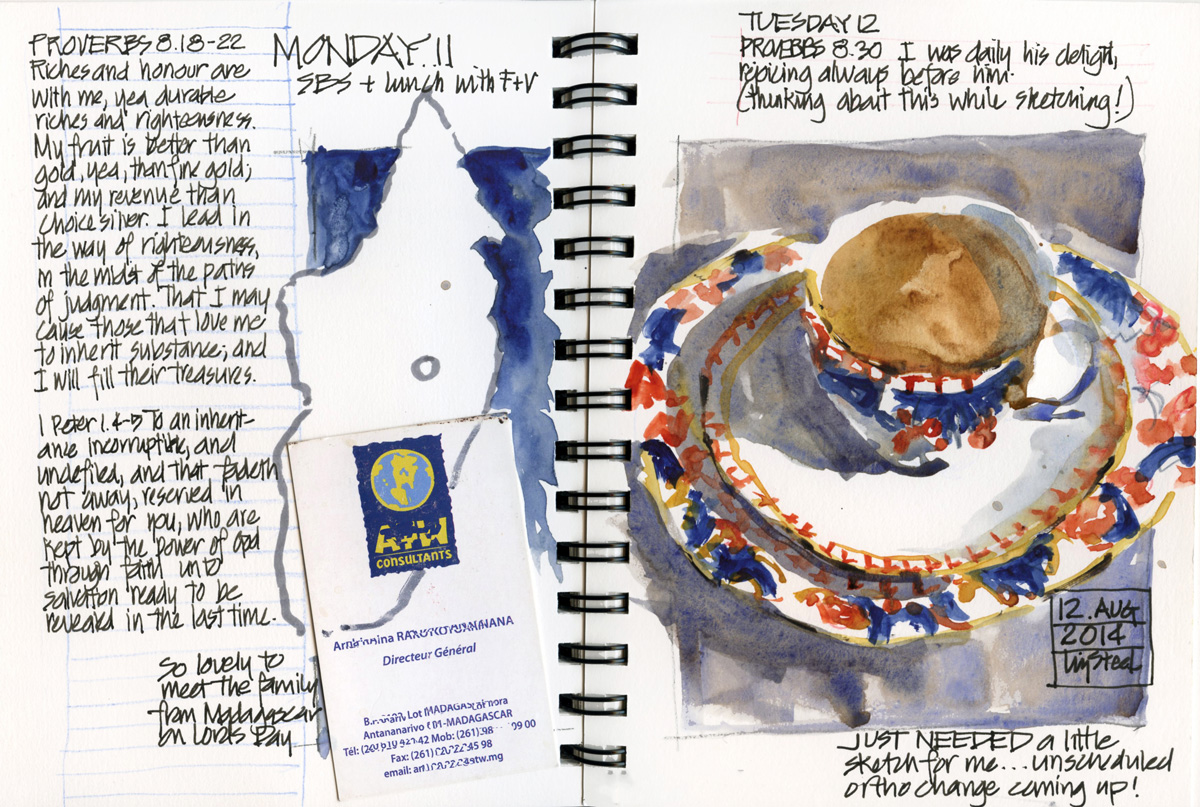 PROVERBS 8.18-22
Riches and honour are
with me, yea durable
riches and righteousness.
My fruit is better than
gold, yea, than fine gold;
and my revenue than
choice silver. I lead in
the way of righteousness,
in the midst of the paths
of judgment. That I may
cause those that love me
to inherit substance; and
I will fill their treasures.
1 Peter 1.4-5 To an inherit-
ance incorruptible, and
undefiled, and that fadeth
not away, reserved in
heaven for you, who are
kept by the power of God
through faith unto
salvation ready to be
revealed in the last time.
So lovely to
meet the family
from Madagascar
on Lord's Day
MONDAY. 11
SBS + lunch with F+V
CONSULTANTS
Directeur Général
Lot MADAGASCAR
Antananarivo 101-MADAGASCAR
Tél: 42 Mob: (261) 98 09 00
Fax: (261) 45 98
email:
TUESDAY 12
PROVERBS 8.30 I was daily his delight,
rejoicing always before him.
(thinking about this while sketching!)
12. AUG
2014
Liz Steel
JUST NEEDED a little
sketch for me... unscheduled
ortho change coming up!